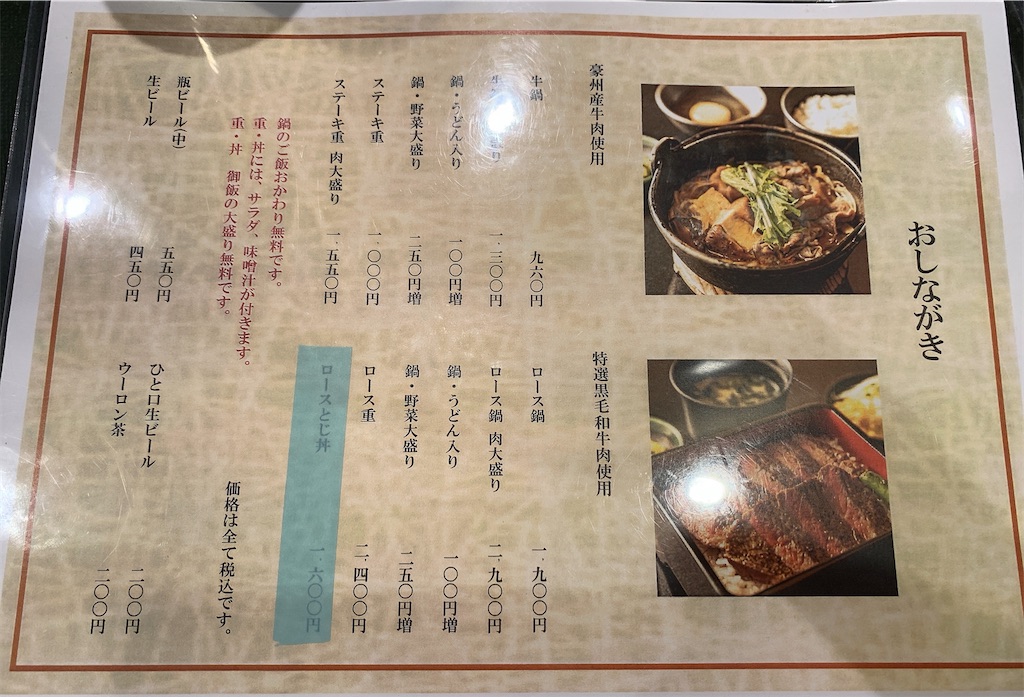 おしながき
豪州産牛肉使用
牛鍋 九六〇円
牛 盛り 一、三〇〇円
鍋・うどん入り 一〇〇円増
鍋・野菜大盛り 二五〇円増
ステーキ重 一、〇〇〇円
ステーキ重 肉大盛り 一、五五〇円
特選黒毛和牛肉使用
ロース鍋 一、九〇〇円
ロース鍋 肉大盛り 二、九〇〇円
鍋・うどん入り 一〇〇円増
鍋・野菜大盛り 二五〇円増
ロース重 二、四〇〇円
ロースとじ丼 一、六〇〇円
鍋のご飯おかわり無料です。
重・丼には、サラダ、味噌汁が付きます。
重・丼 御飯の大盛り無料です。
価格は全て税込です。
瓶ビール(中) 五五〇円
生ビール 四五〇円
ひと口生ビール 二〇〇円
ウーロン茶 二〇〇円